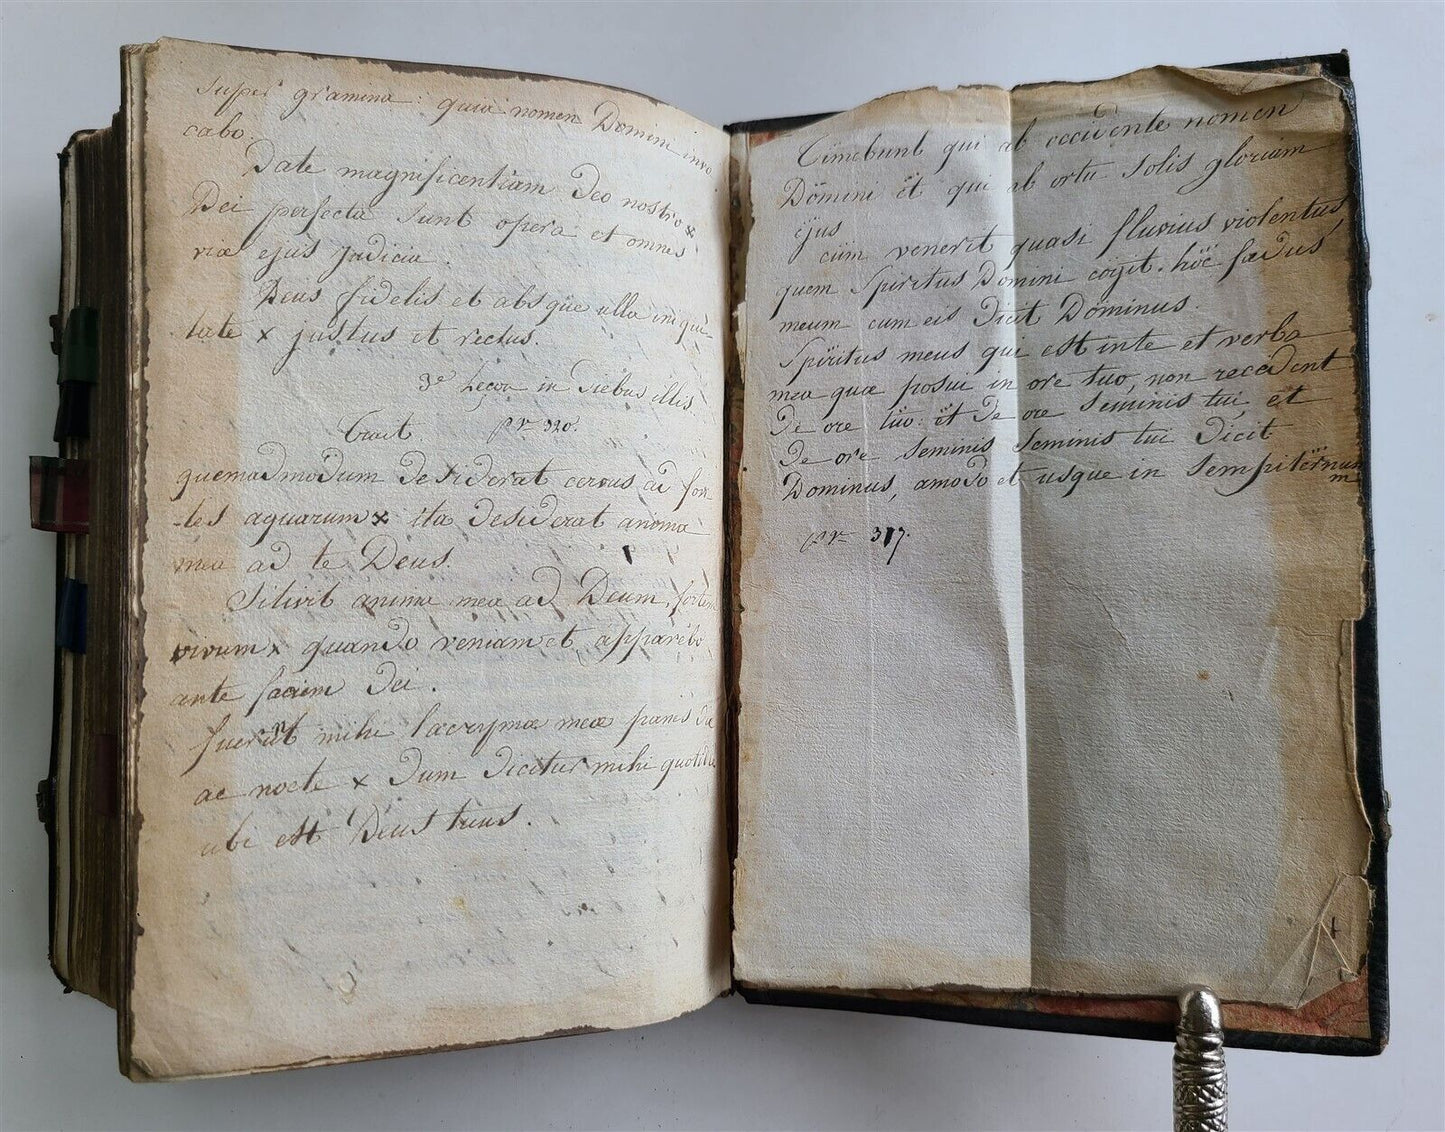 super gramina: quia nomen Domini invo
cabo.
Date magnificentiam Deo nostro x
Dei perfecta sunt opera et omnes
viæ ejus judicia.
Deus fidelis et absque ulla iniqui-
tate x justus et rectus.
3e Leçon in diebus illis
Trait. pr 320.
quemadmodum desiderat cervus ad fon
-tes aquarum x ita desiderat anima
mea ad te Deus.
Sitivit anima mea ad Deum, fortem
vivum x quando veniam et apparebo
ante faciem Dei.
fuerunt mihi lacrymæ meæ panes die
ac nocte x dum dicitur mihi quotidie
ubi est Deus tuus.
Timebunt qui ab occidente nomen
Domini et qui ab ortu solis gloriam
ejus
cum venerit quasi fluvius violentus
quem Spiritus Domini cogit. hoc fædus
meum cum eis dicit Dominus.
Spiritus meus qui est inte et verba
mea quæ posui in ore tuo, non recedent
De ore tuo: et De ore Seminis tui, et
De ore seminis seminis tui dicit
Dominus, amodo et usque in sempiternum
m
pr 317.